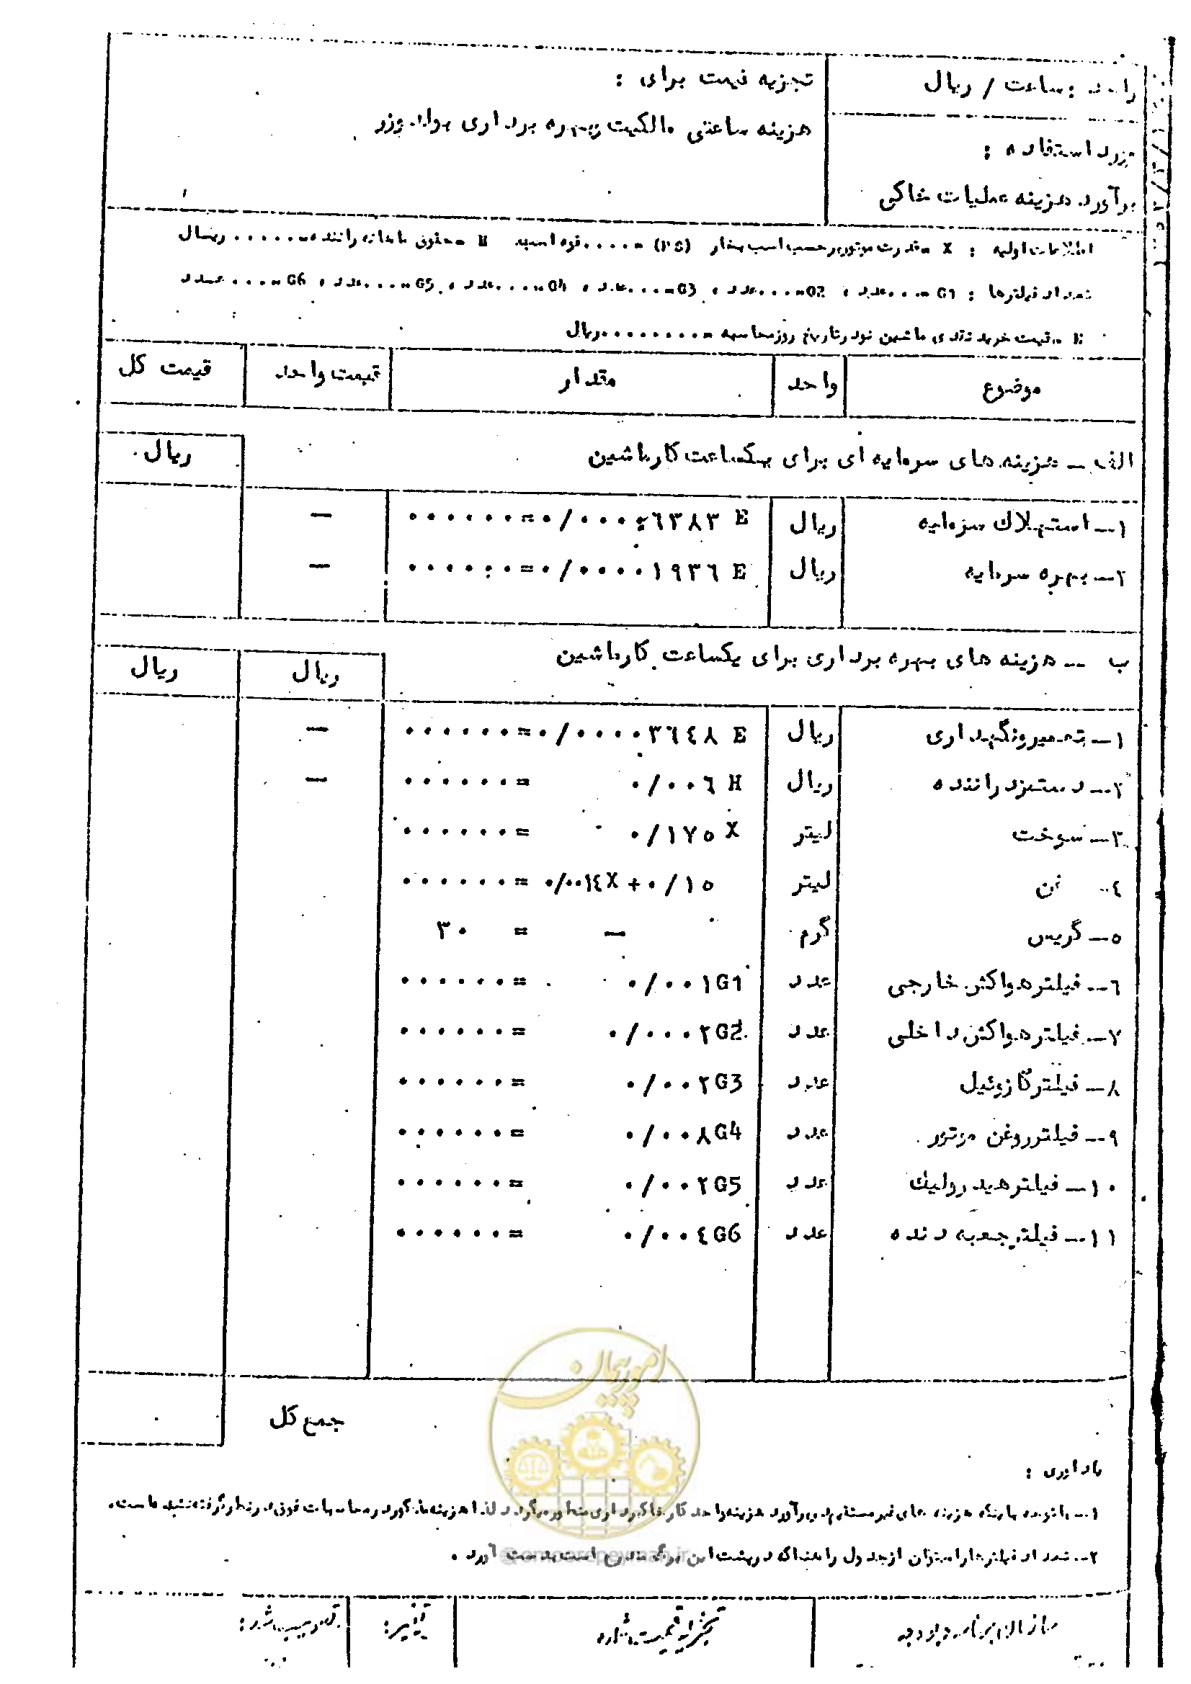 واحد : ساعت / ریال
تجزیه قیمت برای :
هزینه ساعتی مالکیت وبهره برداری بولد وزر
مورد استفاده :
برآورد هزینه عملیات خاکی
اطلاعات اولیه : X = قدرت موتور برحسب اسب بخار (PS) = ..... قوه اسب H = حقوق ماهانه راننده = ...... ریال
تعداد فیلترها : G1 = .... عدد ، G2 = .... عدد ، G3 = .... عدد ، G4 = .... عدد ، G5 = .... عدد ، G6 = .... عدد
E = قیمت خرید نقدی ماشین نو در تاریخ روز محاسبه = ......... ریال
موضوع واحد مقدار قیمت واحد قیمت کل
الف ــ هزینه های سرمایه ای برای یکساعت کار ماشین ریال
۱ــ استهلاک سرمایه ریال ۰/۰۰۰۰٦۳۸۳ E = ...... ــ
۲ــ بهره سرمایه ریال ۰/۰۰۰۰۱۹۳٦ E = ...... ــ
ب ــ هزینه های بهره برداری برای یکساعت کار ماشین ریال ریال
۱ــ تعمیر و نگهداری ریال ۰/۰۰۰۰۳٦٤۸ E = ...... ــ
۲ــ دستمزد راننده ریال ۰/۰۰٦ H = ...... ــ
۳ــ سوخت لیتر ۰/۱۷٥ X = ......
٤ــ لیتر ۰/۰۰۱٤X + ۰/۱٥ = ......
٥ــ گریس گرم ــ = ۳۰
٦ــ فیلتر هواکش خارجی عدد ۰/۰۰۱G1 = ......
۷ــ فیلتر هواکش داخلی عدد ۰/۰۰۰۲G2 = ......
۸ــ فیلتر گازوئیل عدد ۰/۰۰۲G3 = ......
۹ــ فیلتر روغن موتور عدد ۰/۰۰۸G4 = ......
۱۰ــ فیلتر هیدرولیک عدد ۰/۰۰۲G5 = ......
۱۱ــ فیلتر جعبه دنده عدد ۰/۰۰٤G6 = ......
جمع کل
امور پیمان
یادآوری :
۱ــ با توجه باینکه هزینه های غیر مستقیم در برآورد هزینه واحد کار خاکبرداری منظور میگردد لذا هزینه مذکور در محاسبات فوق در نظر گرفته نشده است.
۲ــ تعداد فیلترها را میتوان از جدول راهنما که در پشت این برگ مندرج است بدست آورد .
@omoorepeyman.ir
سازمان برنامه و بودجه تجزیه قیمت شماره تغییر: تصویب شد: